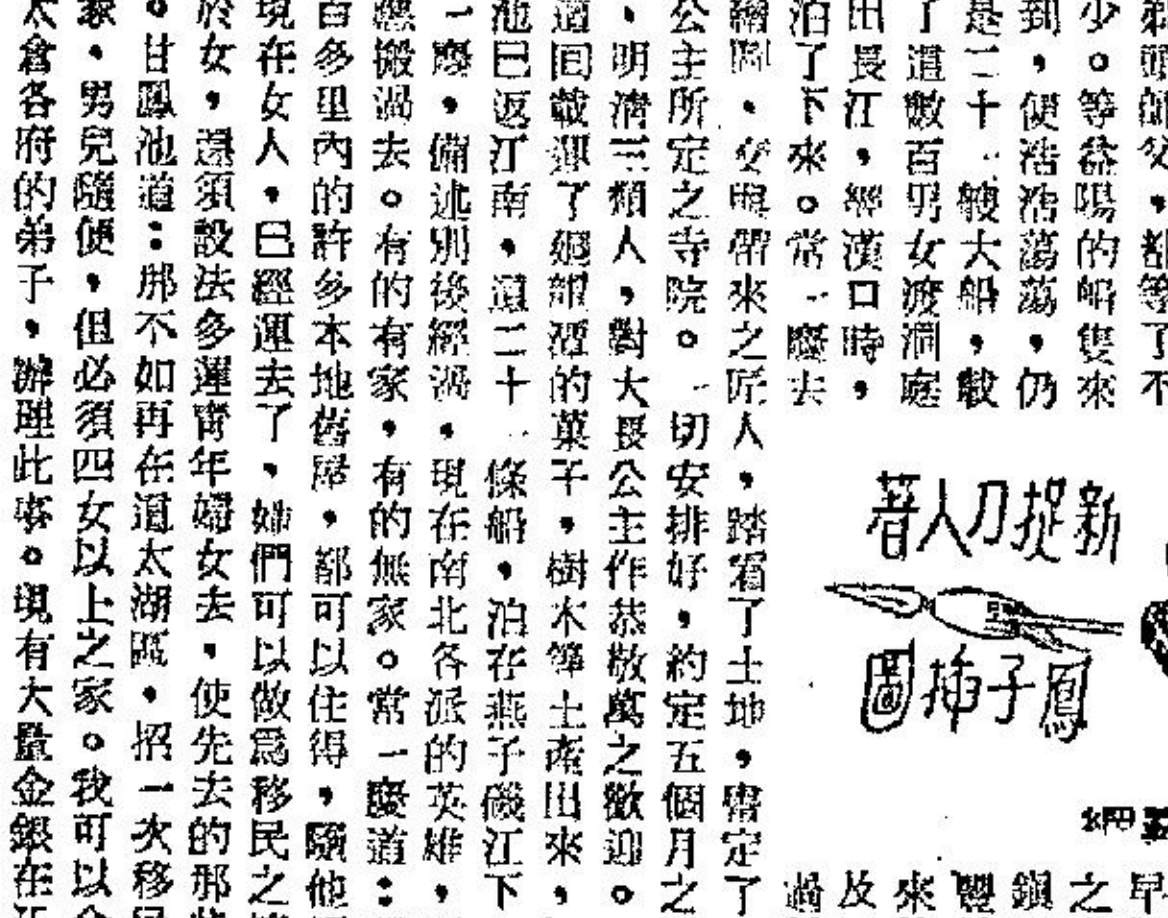 剃頭師父，都等了不
少。等益陽的船隻來
到，便浩浩蕩蕩，仍
是二十一艘大船，載
了這數百男女渡洞庭
出長江，經漢口時，
泊了下來。常一慶去
新捉刀人著
鳳子插圖
早
之
鎮
豐
來
及
過
繪圖，交與帶來之匠人，踏看了土地，定了
公主所定之寺院。一切安排好，約定五個月之
，明濟三類人，對大長公主作恭敬萬之歡迎。
這回載運了的菓子，樹木等土產出來，
池已返江南，這二十一條船，泊在燕子磯江下
一慶，備述別後經過，現在南北各派的英雄，
應搬過去。有的有家，有的無家。常一慶道：
百多里內的許多本地舊屋，都可以住得，隨他
現在女人，已經運去了，她們可以做爲移民之
於女，還須設法多運青年婦女去，使先去的那
。甘鳳池道：那不如再在這太湖區，招一次移
家，男兒隨便，但必須四女以上之家。我可以
太倉各府的弟子，辦理此事。現有大量金銀在